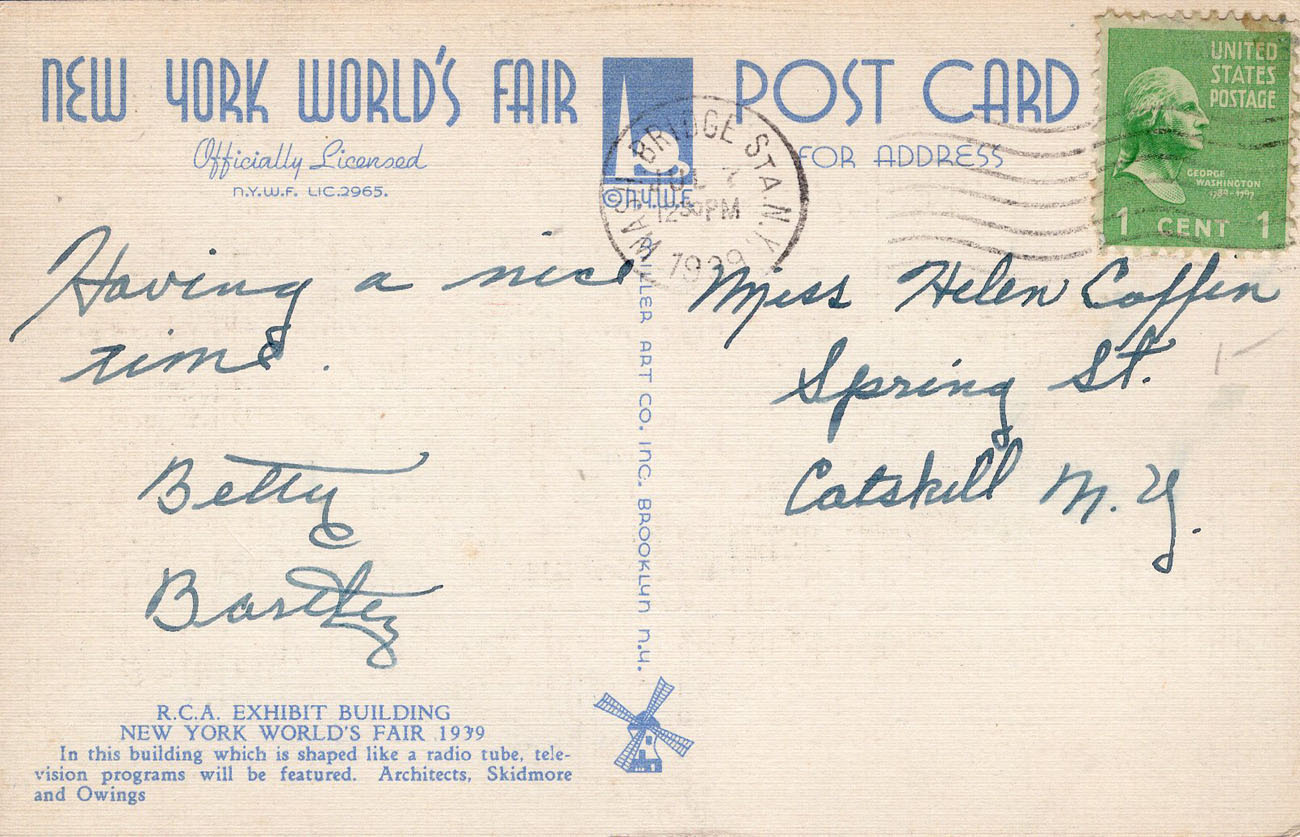 NEW YORK WORLD'S FAIR
Officially Licensed
N.Y.W.F. LIC.2965.
©N.Y.W.F.
POST CARD
FOR ADDRESS
WASH. BRIDGE STA. N.Y.
JUL 7
12 30 PM
1939
UNITED
STATES
POSTAGE
GEORGE
WASHINGTON
1789-1797
1 CENT 1
Having a nice
time.
Betty
Bartley
Miss Helen Coffin
Spring St.
Catskill N.Y.
MILLER ART CO. INC. BROOKLYN N.Y.
R.C.A. EXHIBIT BUILDING
NEW YORK WORLD'S FAIR 1939
In this building which is shaped like a radio tube, tele-
vision programs will be featured. Architects, Skidmore
and Owings